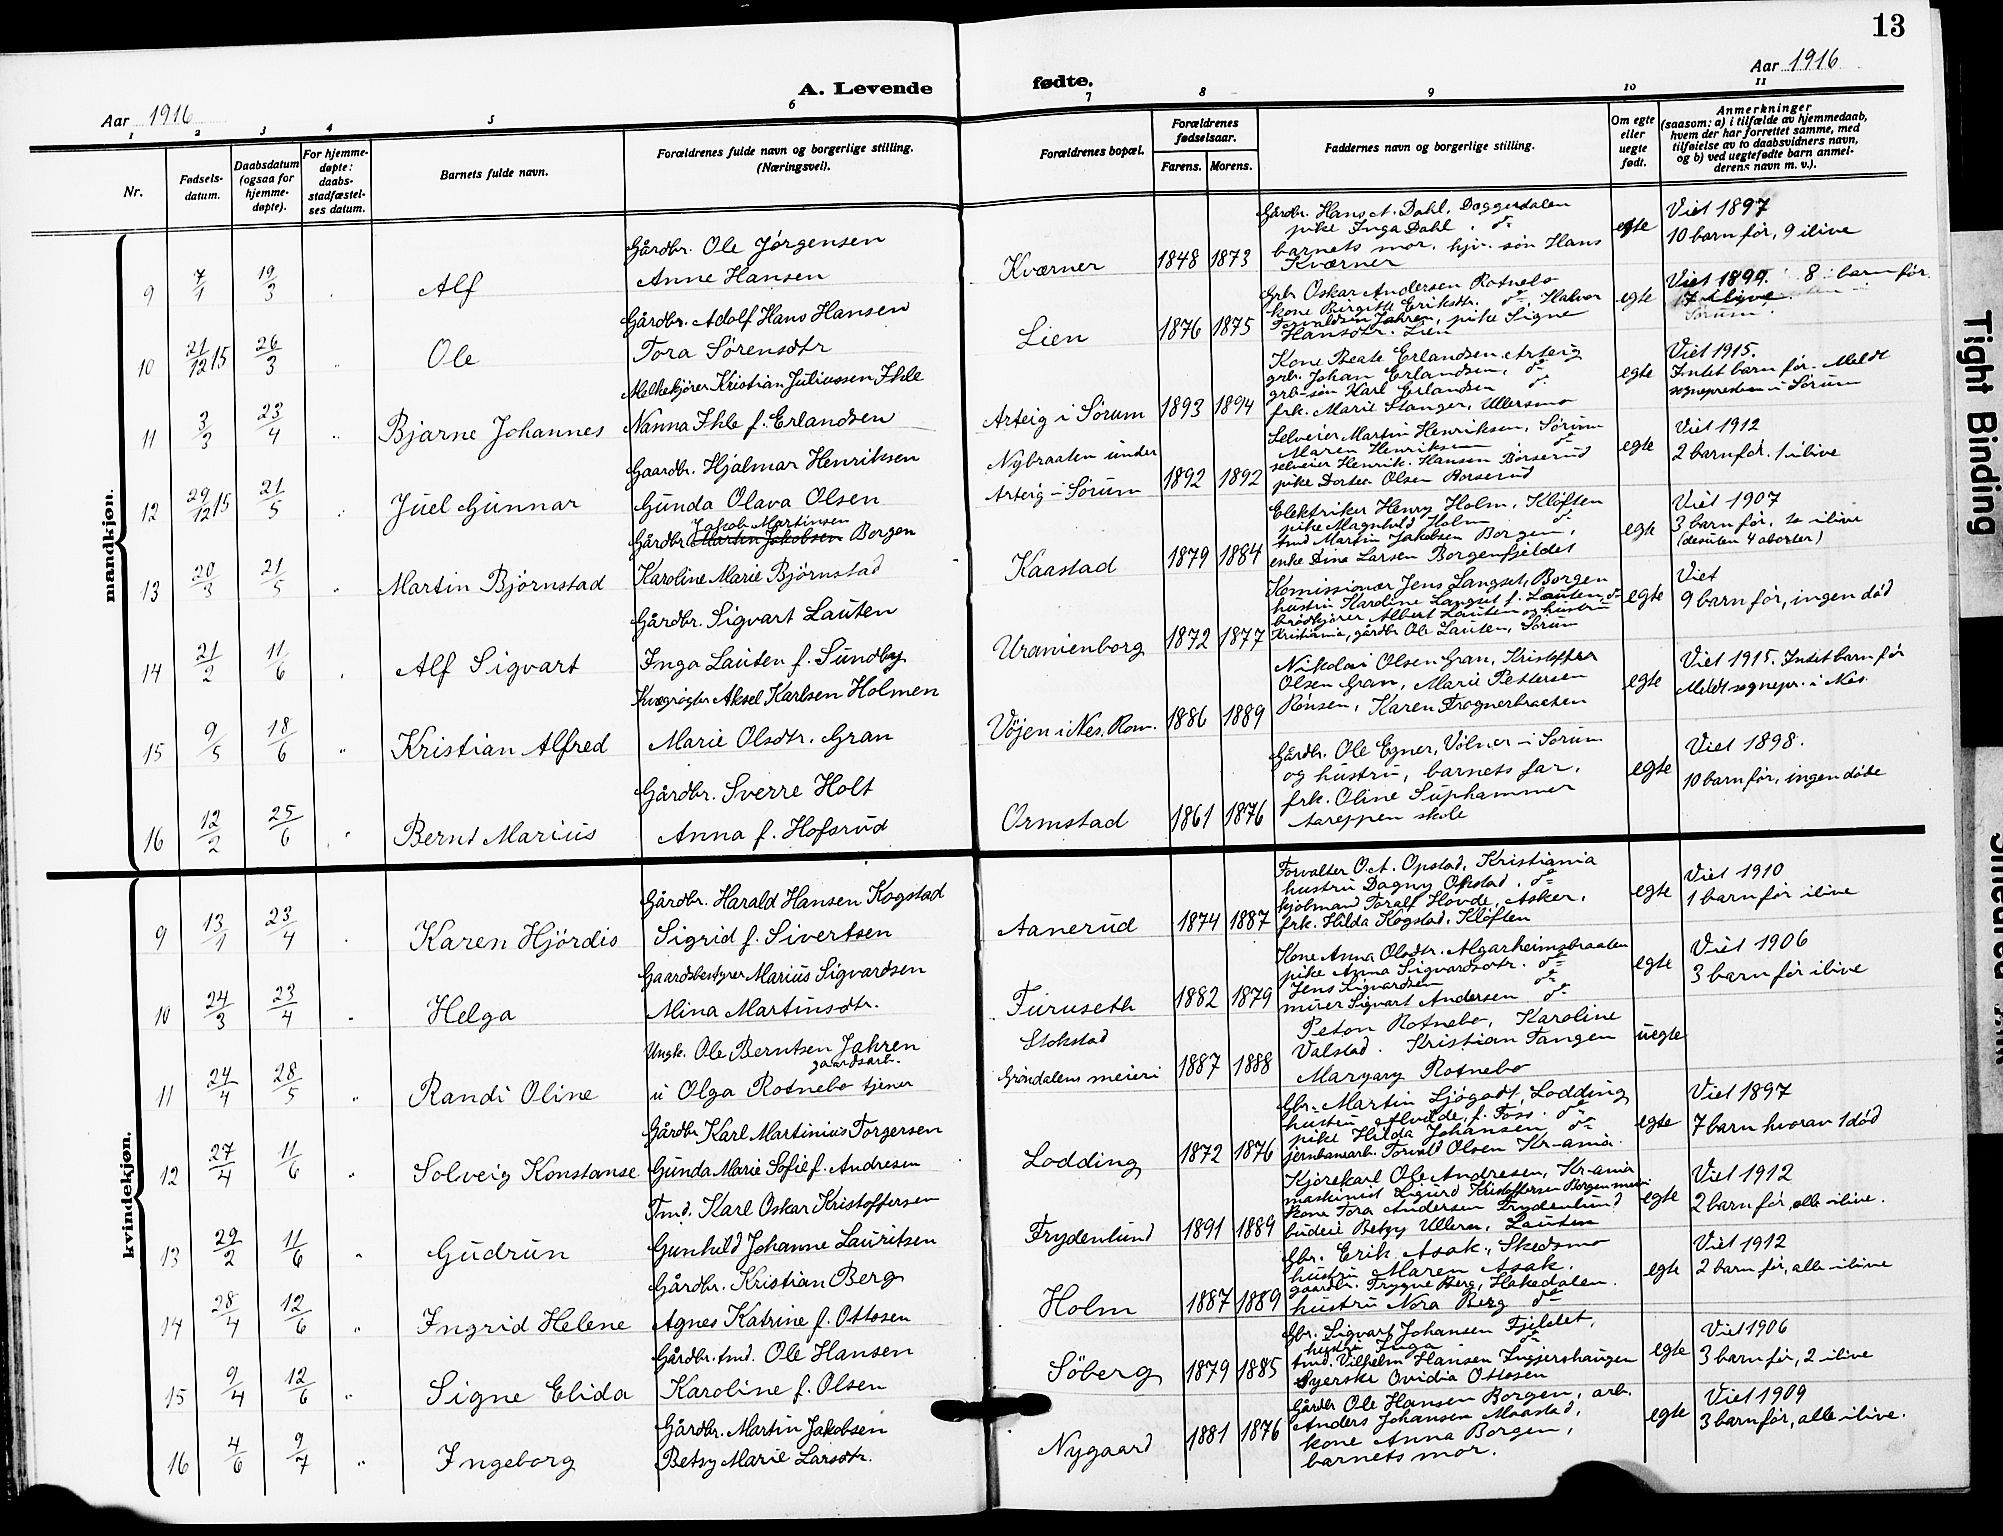 13
Aar 1916
A. Levende
fødte.
Aar 1916
1 2 3 4 5 6 7 8 9 10 11
Nr.
Fødsels-
datum.
Daabsdatum
(ogsaa for
hjemme-
døpte).
For hjemme-
døpte:
daabs-
stadfæstel-
ses datum.
Barnets fulde navn.
Forældrenes fulde navn og borgerlige stilling.
(Næringsvei).
Forældrenes bopæl.
Forældrenes
fødselsaar.
Farens. Morens.
Faddernes navn og borgerlige stilling.
Om egte
eller
uegte
født.
Anmerkninger
(saasom: a) i tilfælde av hjemmedaab,
hvem der har forrettet samme, med
tilføielse av to daabsvidners navn,
og b) ved uegtefødte barn anmel-
derens navn m. v.).
mandkjøn.
9 7/1 19/3 Alf
Gårdbr. Ole Jørgensen
Anne Hansen
Kværner 1848 1873
Gårdbr. Hans A. Dahl, Doggerdalen
pike Inga Dahl. do
barnets mor. hjv. søn Hans
Kværner
egte
Viet 1897
10 barn før, 9 ilive
10 21/12 15 26/3 Ole
Gårdbr. Adolf Hans Hansen
Tora Sørensdtr
Lien 1876 1875
Grb. Oskar Andersen Rotnebo
kone Birgitte Eriksdtr. do, Halvor
Torvaldsen Jahren, pike Signe
Hansdtr. Lien
egte
Viet 1899. 8 barn før.
17 ilive.
Sørum.
11 3/3 23/4 Bjarne Johannes
Melkekjører Kristian Juliussen Ihle
Nanna Ihle f. Erlandsen
Arteig i Sørum 1893 1894
Kone Beate Erlandsen, Arteig
grb. Johan Erlandsen, do
grb-søn Karl Erlandsen do
frk. Marie Stanger, Ullersmo
egte
Viet 1915.
Intet barn før. Meldt
sognepresten i Sørum
12 29/12 15 21/5 Juel Gunnar
Gaardbr. Hjalmar Henriksen
Gunda Olava Olsen
Nybraaten under
Arteig i Sørum 1892 1892
Selveier Martin Henriksen, Sørum
Maren Henriksen do
selveier Henrik Hansen Børserud
pike Dortea Olsen Børserud
egte
Viet 1912
2 barn før. 1 ilive
13 20/3 21/5 Martin Bjørnstad
Jakob Martinsen
Gårdbr. Martin Jakobsen Borgen
Karoline Marie Bjørnstad
Kaastad 1879 1884
Elektriker Henry Holm, Kløften
pike Magnhild Holm do
tmd Martin Jakobsen Borgen,
enke Dina Larsen Borgenfjeldet
egte
Viet 1907
3 barn før, to ilive
(desuten 4 aborter)
14 21/2 11/6 Alf Sigvart
Gårdbr. Sigvart Lauten
Inga Lauten f. Sundby
Uranienborg 1872 1877
Komissionær Jens Langset, Borgen
hustru Karoline Langset f. Lauten, do
brødkjører Albert Lauten og hustru
Kristiania, gårdbr Ole Lauten, Sørum
egte
Viet
9 barn før, ingen død
15 9/5 18/6 Kristian Alfred
Kvægrøgter Aksel Karlsen Holmen
Marie Olsdtr. Gran
Vöjen i Nes, Rom. 1886 1889
Nikolai Olsen Gran, Kristoffer
Olsen Gran, Marie Pettersen
Rønsen, Karen Frognerbraaten
egte
Viet 1915. Intet barn før
Meldt sognepr. i Nes.
16 12/2 25/6 Bernt Marius
Gårdbr. Sverre Holt
Anna f. Hofsrud
Ormstad 1861 1876
Gårdbr. Ole Egner, Vølner i Sørum
og hustru, barnets far,
frk. Oline Suphammer
Aareppen skole
egte
Viet 1898.
10 barn før, ingen døde
kvindekjøn.
9 13/1 23/4 Karen Hjördis
Gårdbr. Harald Hansen Kogstad
Sigrid f. Sivertsen
Aanerud 1874 1887
Forvalter O. A. Opstad, Kristiania
hustru Dagny Opstad. do
kjøbmand Toralf Hovde, Asker,
frk. Hilda Kogstad, Kløften
egte
Viet 1910
1 barn før ilive
10 24/3 23/4 Helga
Gaardsbestyrer Marius Sigvardsen
Mina Martinsdtr.
Furuseth 1882 1879
Kone Anna Olsdtr. Algarheimsbraaten
pike Anna Sigvardsdtr. do
Jens Sigvardsen do
murer Sigvart Andersen do
egte
Viet 1906
3 barn før ilive
11 24/4 28/5 Randi Oline
Ungk. Ole Berntsen Jahren
gaardsarb.
u Olga Rotnebo tjener
Stokstad
Grøndalens meieri 1887 1888
Peton Rotnebo, Karoline
Valstad. Kristian Tangen
Margary Rotnebo
uegte
12 27/4 11/6 Solveig Konstanse
Gårdbr Karl Martinius Torgersen
Gunda Marie Sofie f. Andresen
Lodding 1872 1876
Gbr. Martin Sjøgodt, Lodding
hustru Alvilde, f. Foss. do
pike Hilda Johansen do
jernbanearb. Torvald Olsen Kr-ania.
egte
Viet 1897
7 barn hvorav 1 död
13 29/2 11/6 Gudrun
Tmd. Karl Oskar Kristoffersen
Gunhild Johanne Lauritsen
Frydenlund 1891 1889
Kjørekarl Ole Andresen, Kr-ania
maskinist Sigurd Kristoffersen Borgen meieri
kone Tora Andersen Frydenlund
budeie Betzy Ullern, Lauten
egte
Viet 1912
2 barn før, alle ilive.
14 28/4 12/6 Ingrid Helene
Gårdbr. Kristian Berg
Agnes Katrine f. Ottosen
Holm 1887 1889
Gbr. Erik Asak, Skedsmo
hustru Maren Asak.
gaardbr. Trygve Berg, Hakedalen.
hustru Nora Berg do
egte
Viet 1912
2 barn før, alle ilive
15 9/4 12/6 Signe Elida
Gårdbr. tmd. Ole Hansen
Karoline f. Olsen
Söberg 1879 1885
Gbr. Sigvart Johansen Fjeldet,
hustru Inga do
tmd. Vilhelm Hansen Ingjershaugen
Syerske Ovidia Ottosen
egte
Viet 1906
3 barn før, 2 ilive
16 4/6 9/7 Ingeborg
Gårdbr. Martin Jakobsen
Betsy Marie Larsdtr.
Nygaard 1881 1876
Gårdbr Ole Hansen Borgen, arb.
Anders Johansen Maastad,
kone Anna Borgen,
barnets mor.
egte
Viet 1909
3 barn før, alle ilive.
Tight Binding